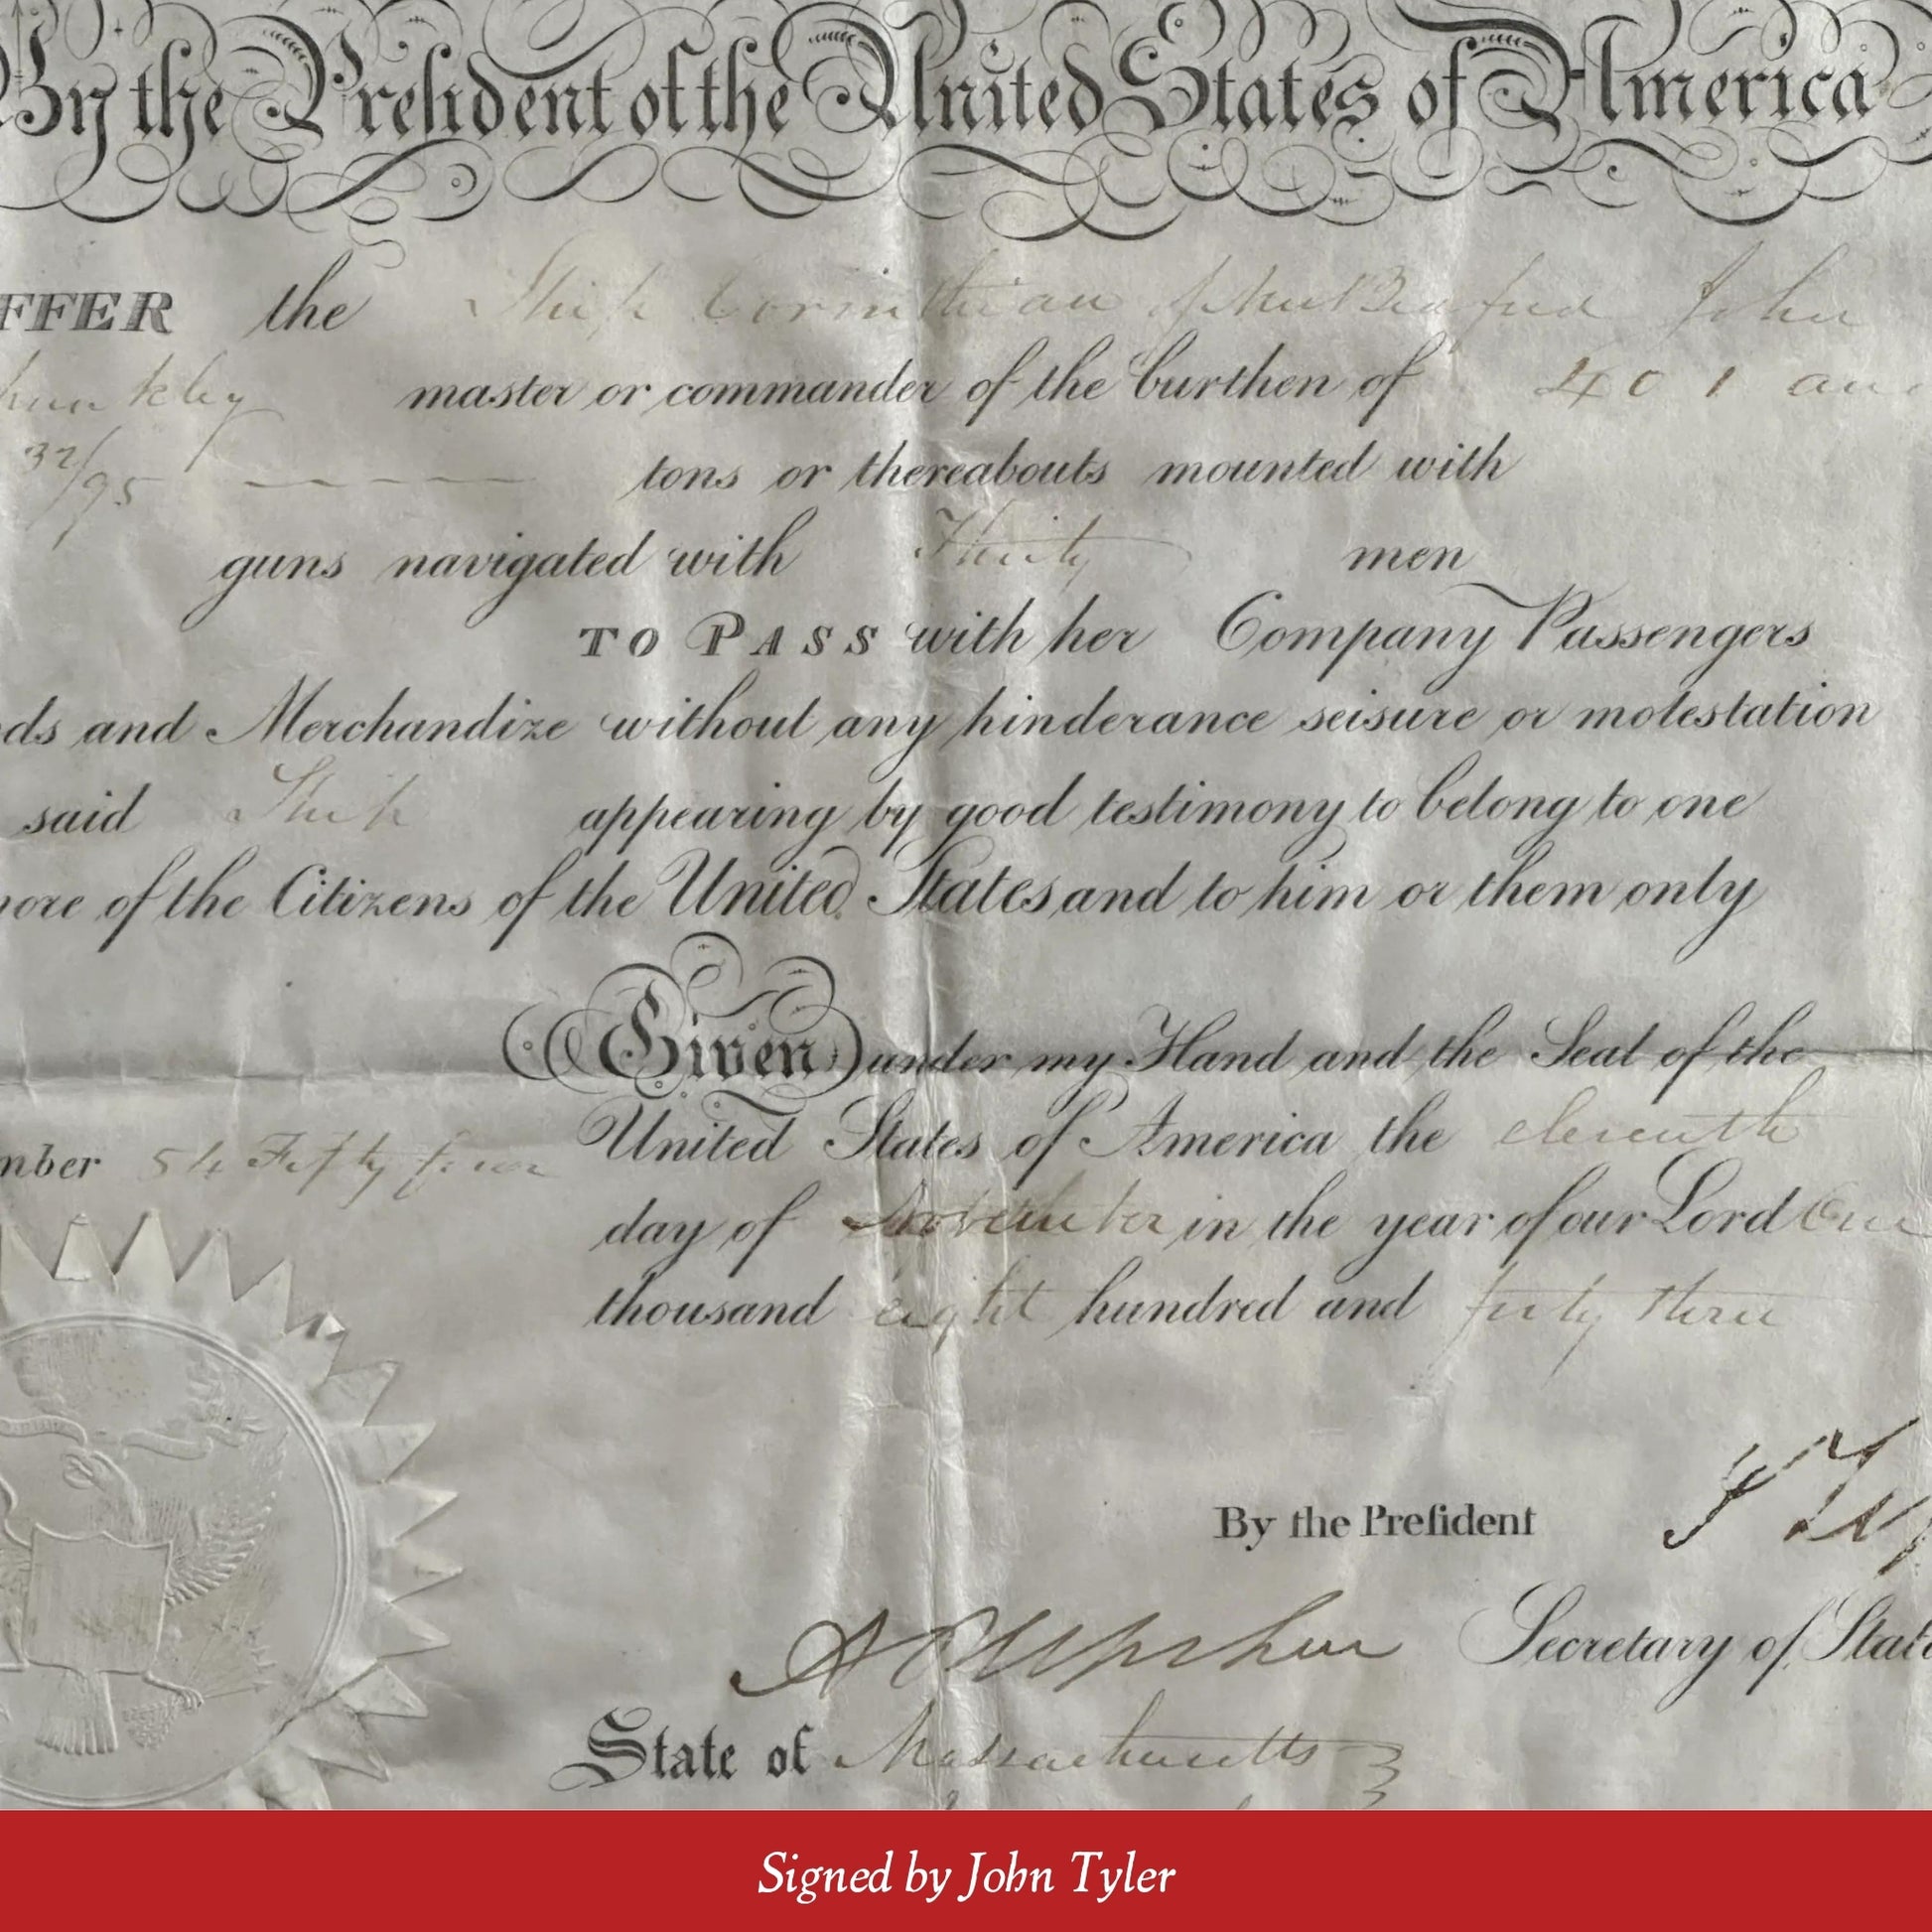 By the President of the United States of America
FFER the Ship Corinthian of New Bedford John
master or commander of the burthen of 401 an
32/95 tons or thereabouts mounted with
guns navigated with Thirty men
TO PASS with her Company Passengers
ds and Merchandize without any hinderance seisure or molestation
said Ship appearing by good testimony to belong to one
more of the Citizens of the United States and to him or them only
Given under my Hand and the Seal of the
United States of America the eleventh
mber 54 Fifty four
day of November in the year of our Lord One
thousand eight hundred and forty three
By the President J Ty
A P Upshur Secretary of Stat
State of Massachusetts
Signed by John Tyler